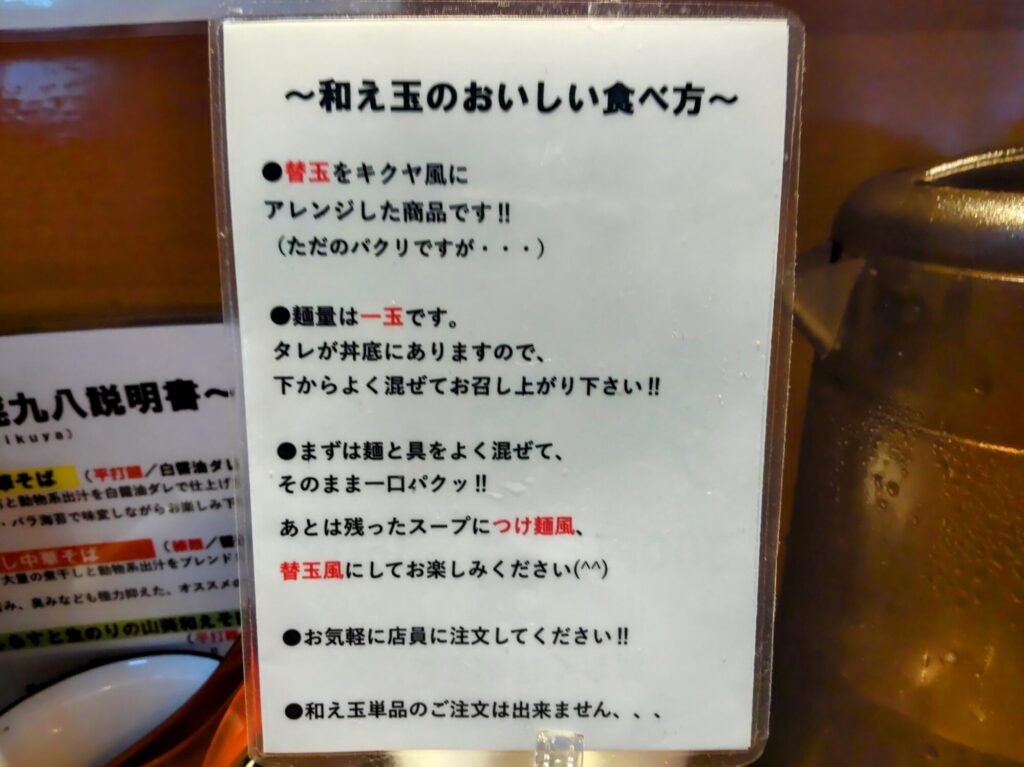 ～和え玉のおいしい食べ方～
●替玉をキクヤ風に
アレンジした商品です!!
（ただのパクリですが・・・）
●麺量は一玉です。
タレが丼底にありますので、
下からよく混ぜてお召し上がり下さい!!
●まずは麺と具をよく混ぜて、
そのまま一口パクッ!!
あとは残ったスープにつけ麺風、
替玉風にしてお楽しみください(^^)
●お気軽に店員に注文してください!!
●和え玉単品のご注文は出来ません、、、
九八説明書～
ikuya）
華そば（平打麺／白醤油ダレ
と動物系出汁を白醤油ダレで仕上げ
・バラ海苔で味変しながらお楽しみ下
し中華そば（細麺／醤
大量の煮干しと動物系出汁をブレンド
み、臭みなども極力抑えた、オススメの
らすと生のりの山葵和えそば
（平打麺